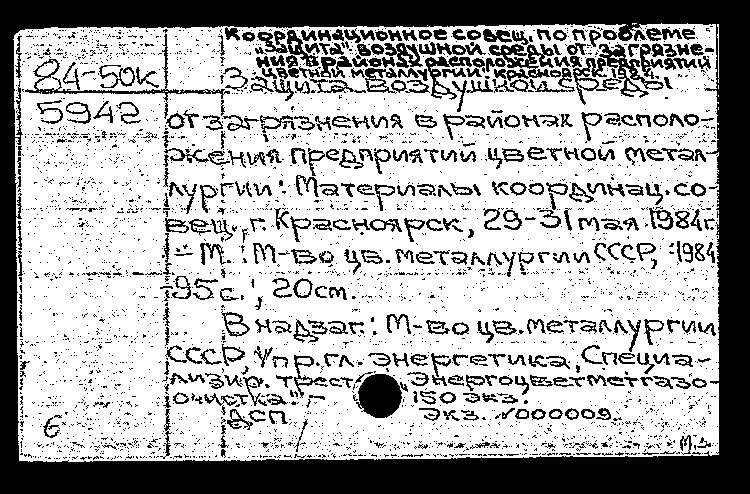 Координационное совещ. по проблеме
"Защита воздушной среды от загрязне-
ния в районах расположения предприятий
цветной металлургии" Красноярск.
84-50к
Защита воздушной среды
5942
от загрязнения в районах располо-
жения предприятий цветной метал-
лургии: Материалы координац. со-
вещ., г. Красноярск, 29-31 мая 1984г.
- М.: М-во цв. металлургии СССР, 1984
95 с.; 20 см.
В надзаг.: М-во цв. металлургии
СССР, Упр. гл. энергетика, Специа-
лизир. трест "Энергоцветметгазо-
очистка" - 150 экз.
ДСП Экз. №000009.
6